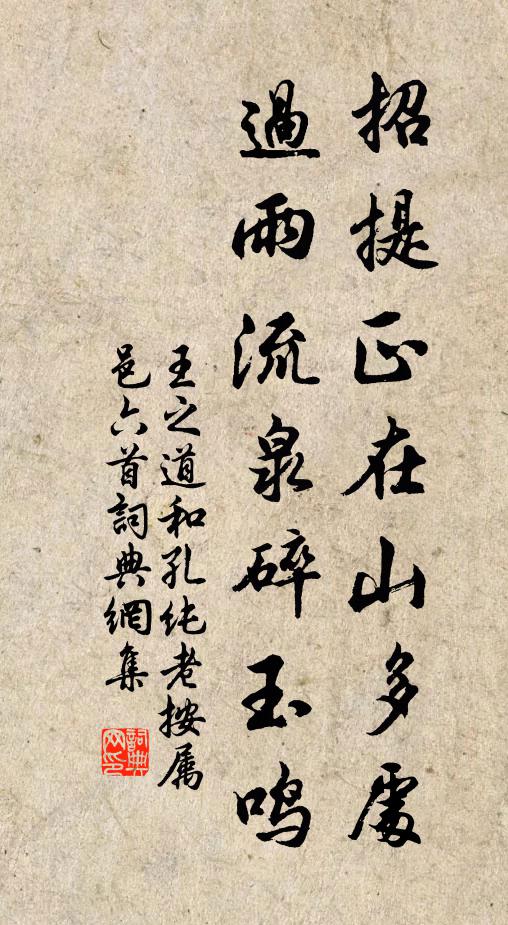 招提正在山多處
過雨流泉碎玉鳴
王之道和孔純老按屬
邑六首詞典網集
詞典網印